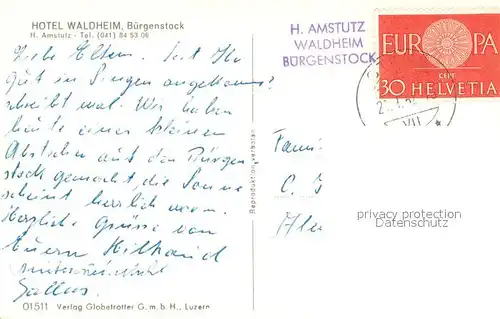 HOTEL WALDHEIM, Bürgenstock
H. Amstutz - Tel. (041) 84 53 06
Liebe Eltern. Seit Ihr
gut in Singen angekommen?
schreibt mal. Wir haben
heute einen kleinen
Abstecher auf den Bürgen
stock gemacht, die Sonne
scheint herrlich warm.
Herzliche Grüsse von
Euern
01511 Verlag Globetrotter G. m. b. H., Luzern
Reproduktion verboten
H. AMSTUTZ
WALDHEIM
BÜRGENSTOCK
EUROPA
CEPT
30 HELVETIA
VII
Fami
C.
privacy protection
Datenschutz